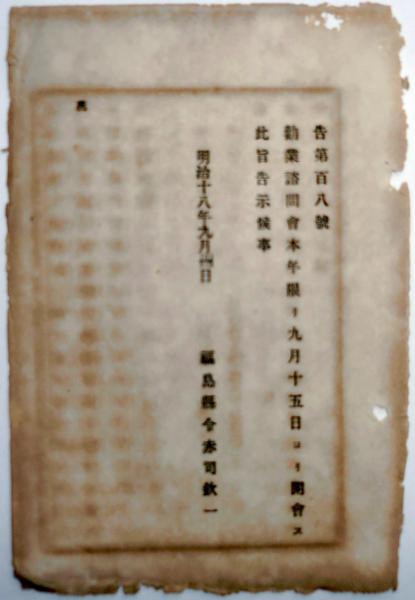 告第百八號
勧業諮問會本年限リ九月十五日ヨリ開會ス
此旨告示候事
明治十八年九月四日
福島縣令赤司欽一